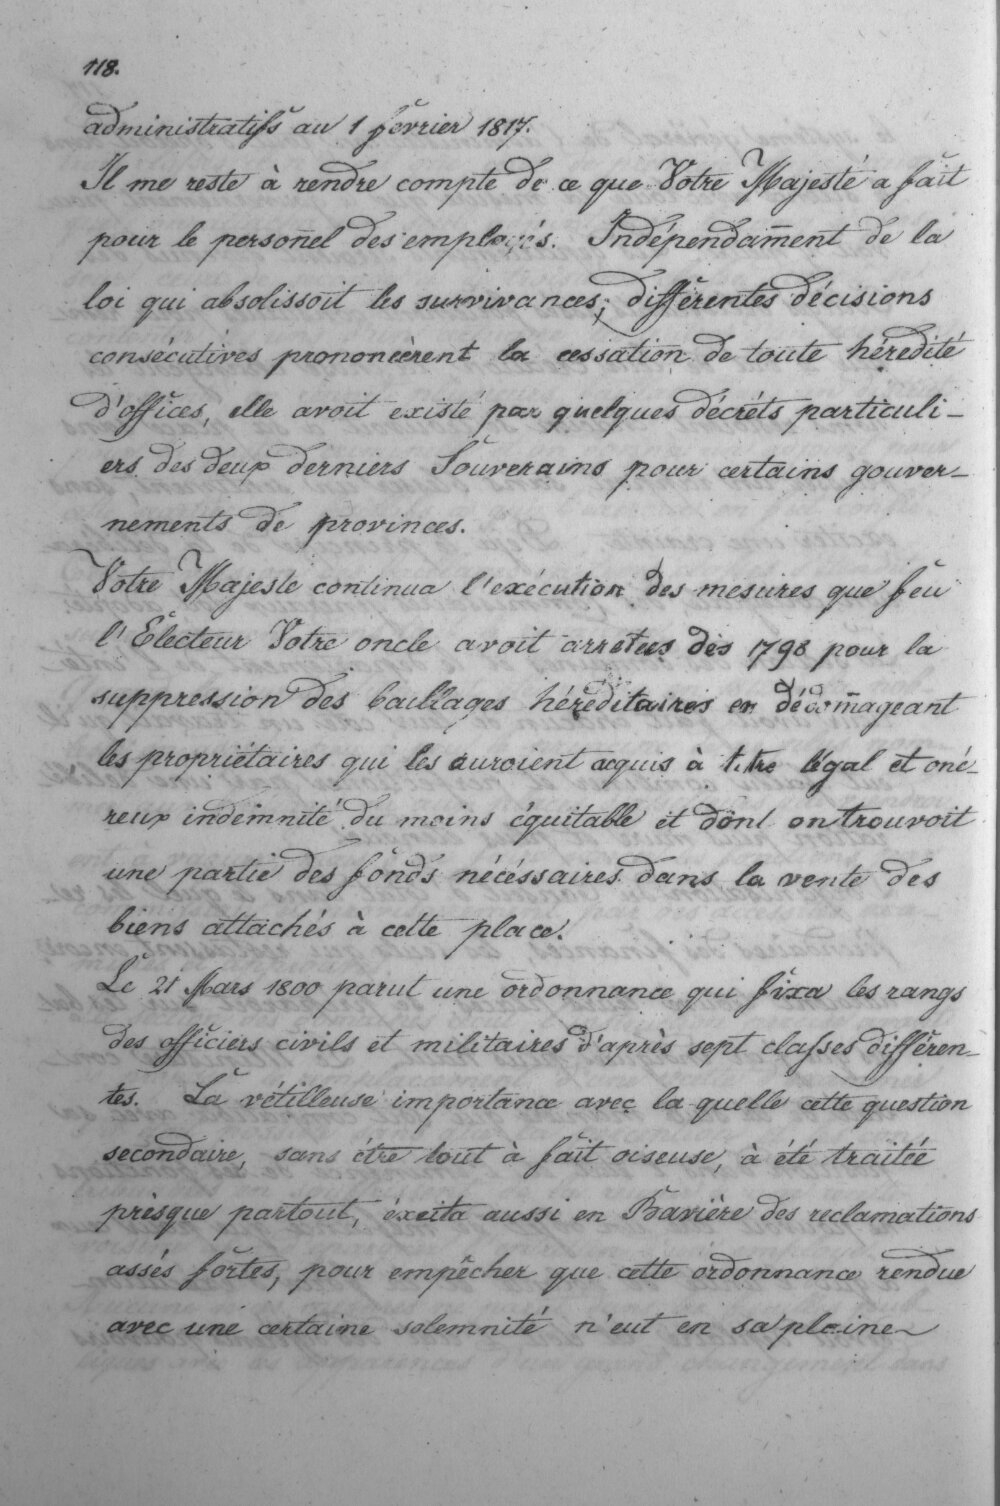 118.
administratifs au 1 février 1817.
Il me reste à rendre compte de ce que Votre Majesté a fait
pour le personnel des employés. Indépendam̄ent de la
loi qui absolissoit les survivances; différentes décisions
consécutives prononcèrent la cessation de toute hérédité
d'offices, elle avoit existé par quelques décréts particuli-
ers des deux derniers Souverains pour certains gouver-
nements de provinces.
Votre Majesté continua l'exécution des mesures que feu
l'Électeur Votre oncle avoit arretées dès 1798 pour la
suppression des bailliages héréditaires en dédom̄ageant
les propriétaires qui les auroient acquis à titre légal et oné-
reux indemnité du moins équitable et dont on trouvoit
une partie des fonds nécéssaires dans la vente des
biens attachés à cette place.
Le 21 Mars 1800 parut une ordonnance qui fixa les rangs
des officiers civils et militaires d'après sept classes différen-
tes. La vétilleuse importance avec la quelle cette question
secondaire, sans être tout à fait oiseuse, à été traitée
prèsque partout, éxcita aussi en Bavière des reclamations
assés fortes, pour empêcher que cette ordonnance rendue
avec une certaine solemnité n'eut en sa pleine